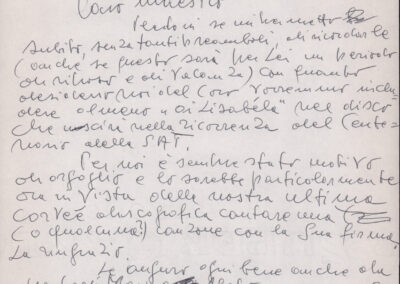 Caro Maestro
Perdoni se mi permetto
subito, senza tanti preamboli, di ricordarle
(anche se questo sarà per Lei un periodo
di riposo e di vacanza) con quanto
desiderio noi del Coro vorremmo inclu=
dere almeno "ai Lisabéla" nel disco
che uscirà nella ricorrenza del Cente=
nario della SAT.
Per noi è sempre stato motivo
di orgoglio e lo sarebbe particolarmente
ora in vista della nostra ultima
corvée discografica cantare una
(o qualcuna?) canzone con la Sua firma.
La ringrazio.
Le auguro ogni bene anche da